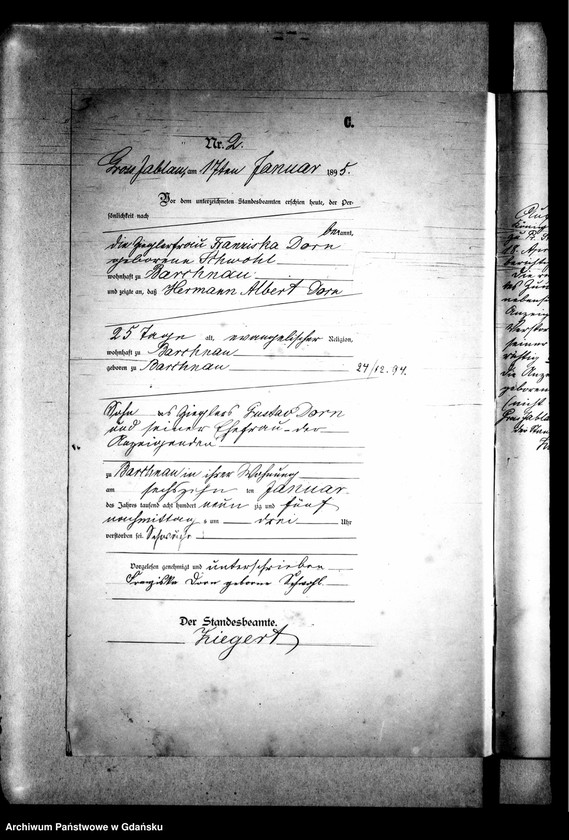 C.
Nr. 2.
Gross Jablau, am 17ten Januar 1895.
Vor dem unterzeichneten Standesbeamten erschien heute, der Per-
sönlichkeit nach
bekannt,
die Zieglerfrau Franziska Dorn
geborene Schwohl
wohnhaft zu Barchnau
und zeigte an, daß Hermann Albert Dorn
25 Tage alt, evangelischer Religion,
wohnhaft zu Barchnau
geboren zu Barchnau 24/12. 94.
Sohn des Zieglers Gustav Dorn
und seiner Ehefrau der
Anzeigenden
zu Barchnau in ihrer Wohnung
am sechszehn ten Januar
des Jahres tausend acht hundert neun zig und fünf
nachmittags um drei Uhr
verstorben sei.
Vorgelesen, genehmigt und unterschrieben
Franziska Dorn geborne Schwohl
Der Standesbeamte.
Ziegert
Archiwum Państwowe w Gdańsku